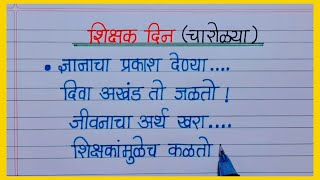 शिक्षक दिन (चारोळया)
• ज्ञानाचा प्रकाश देण्या....
दिवा अखंड तो जळतो !
जीवनाचा अर्थ खरा....
शिक्षकांमुळेच कळतो